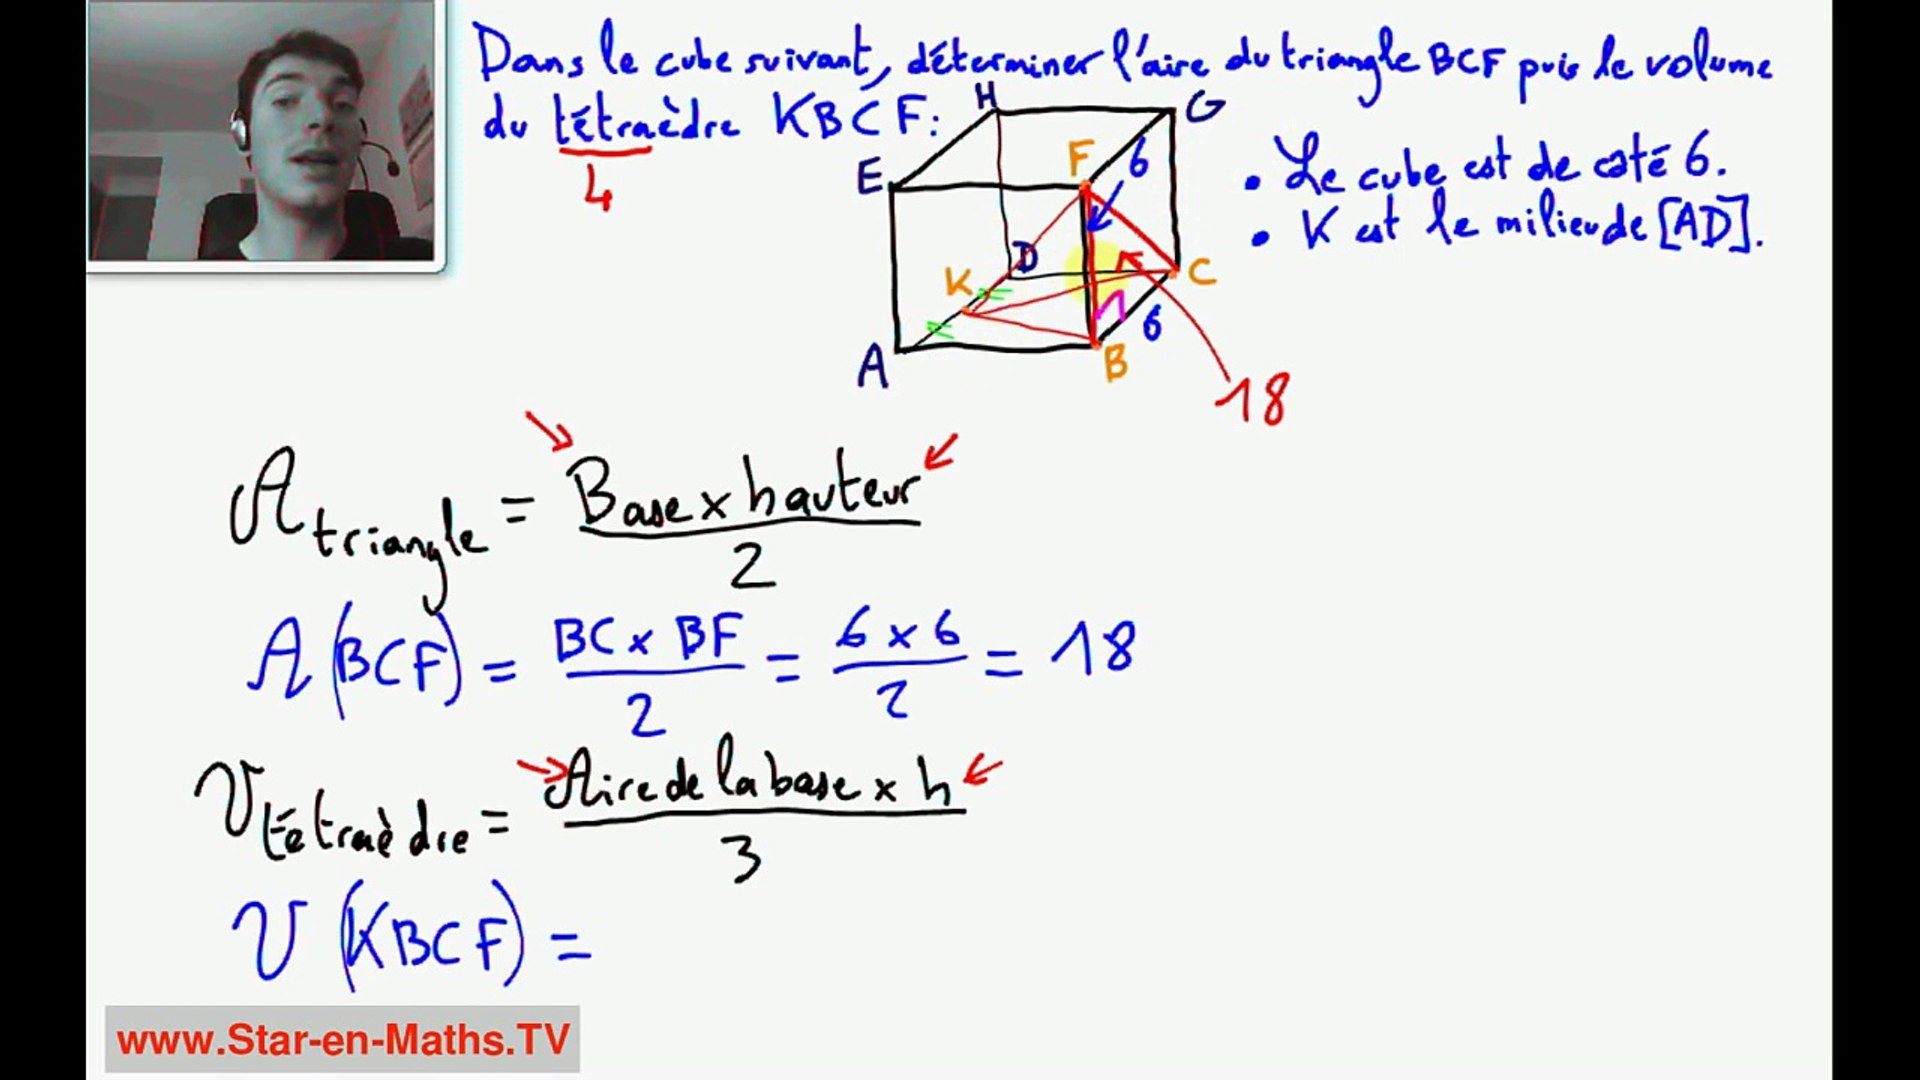 Dans le cube suivant, déterminer l'aire du triangle BCF puis le volume
du tétraèdre KBCF:
4
H
G
E
F
6
D
K
C
6
A
B
18
• Le cube est de coté 6.
• K est le milieu de [AD].
A triangle = Base x hauteur / 2
A (BCF) = BC x BF / 2 = 6 x 6 / 2 = 18
V tétraèdre = Aire de la base x h / 3
V (KBCF) =
www.Star-en-Maths.TV